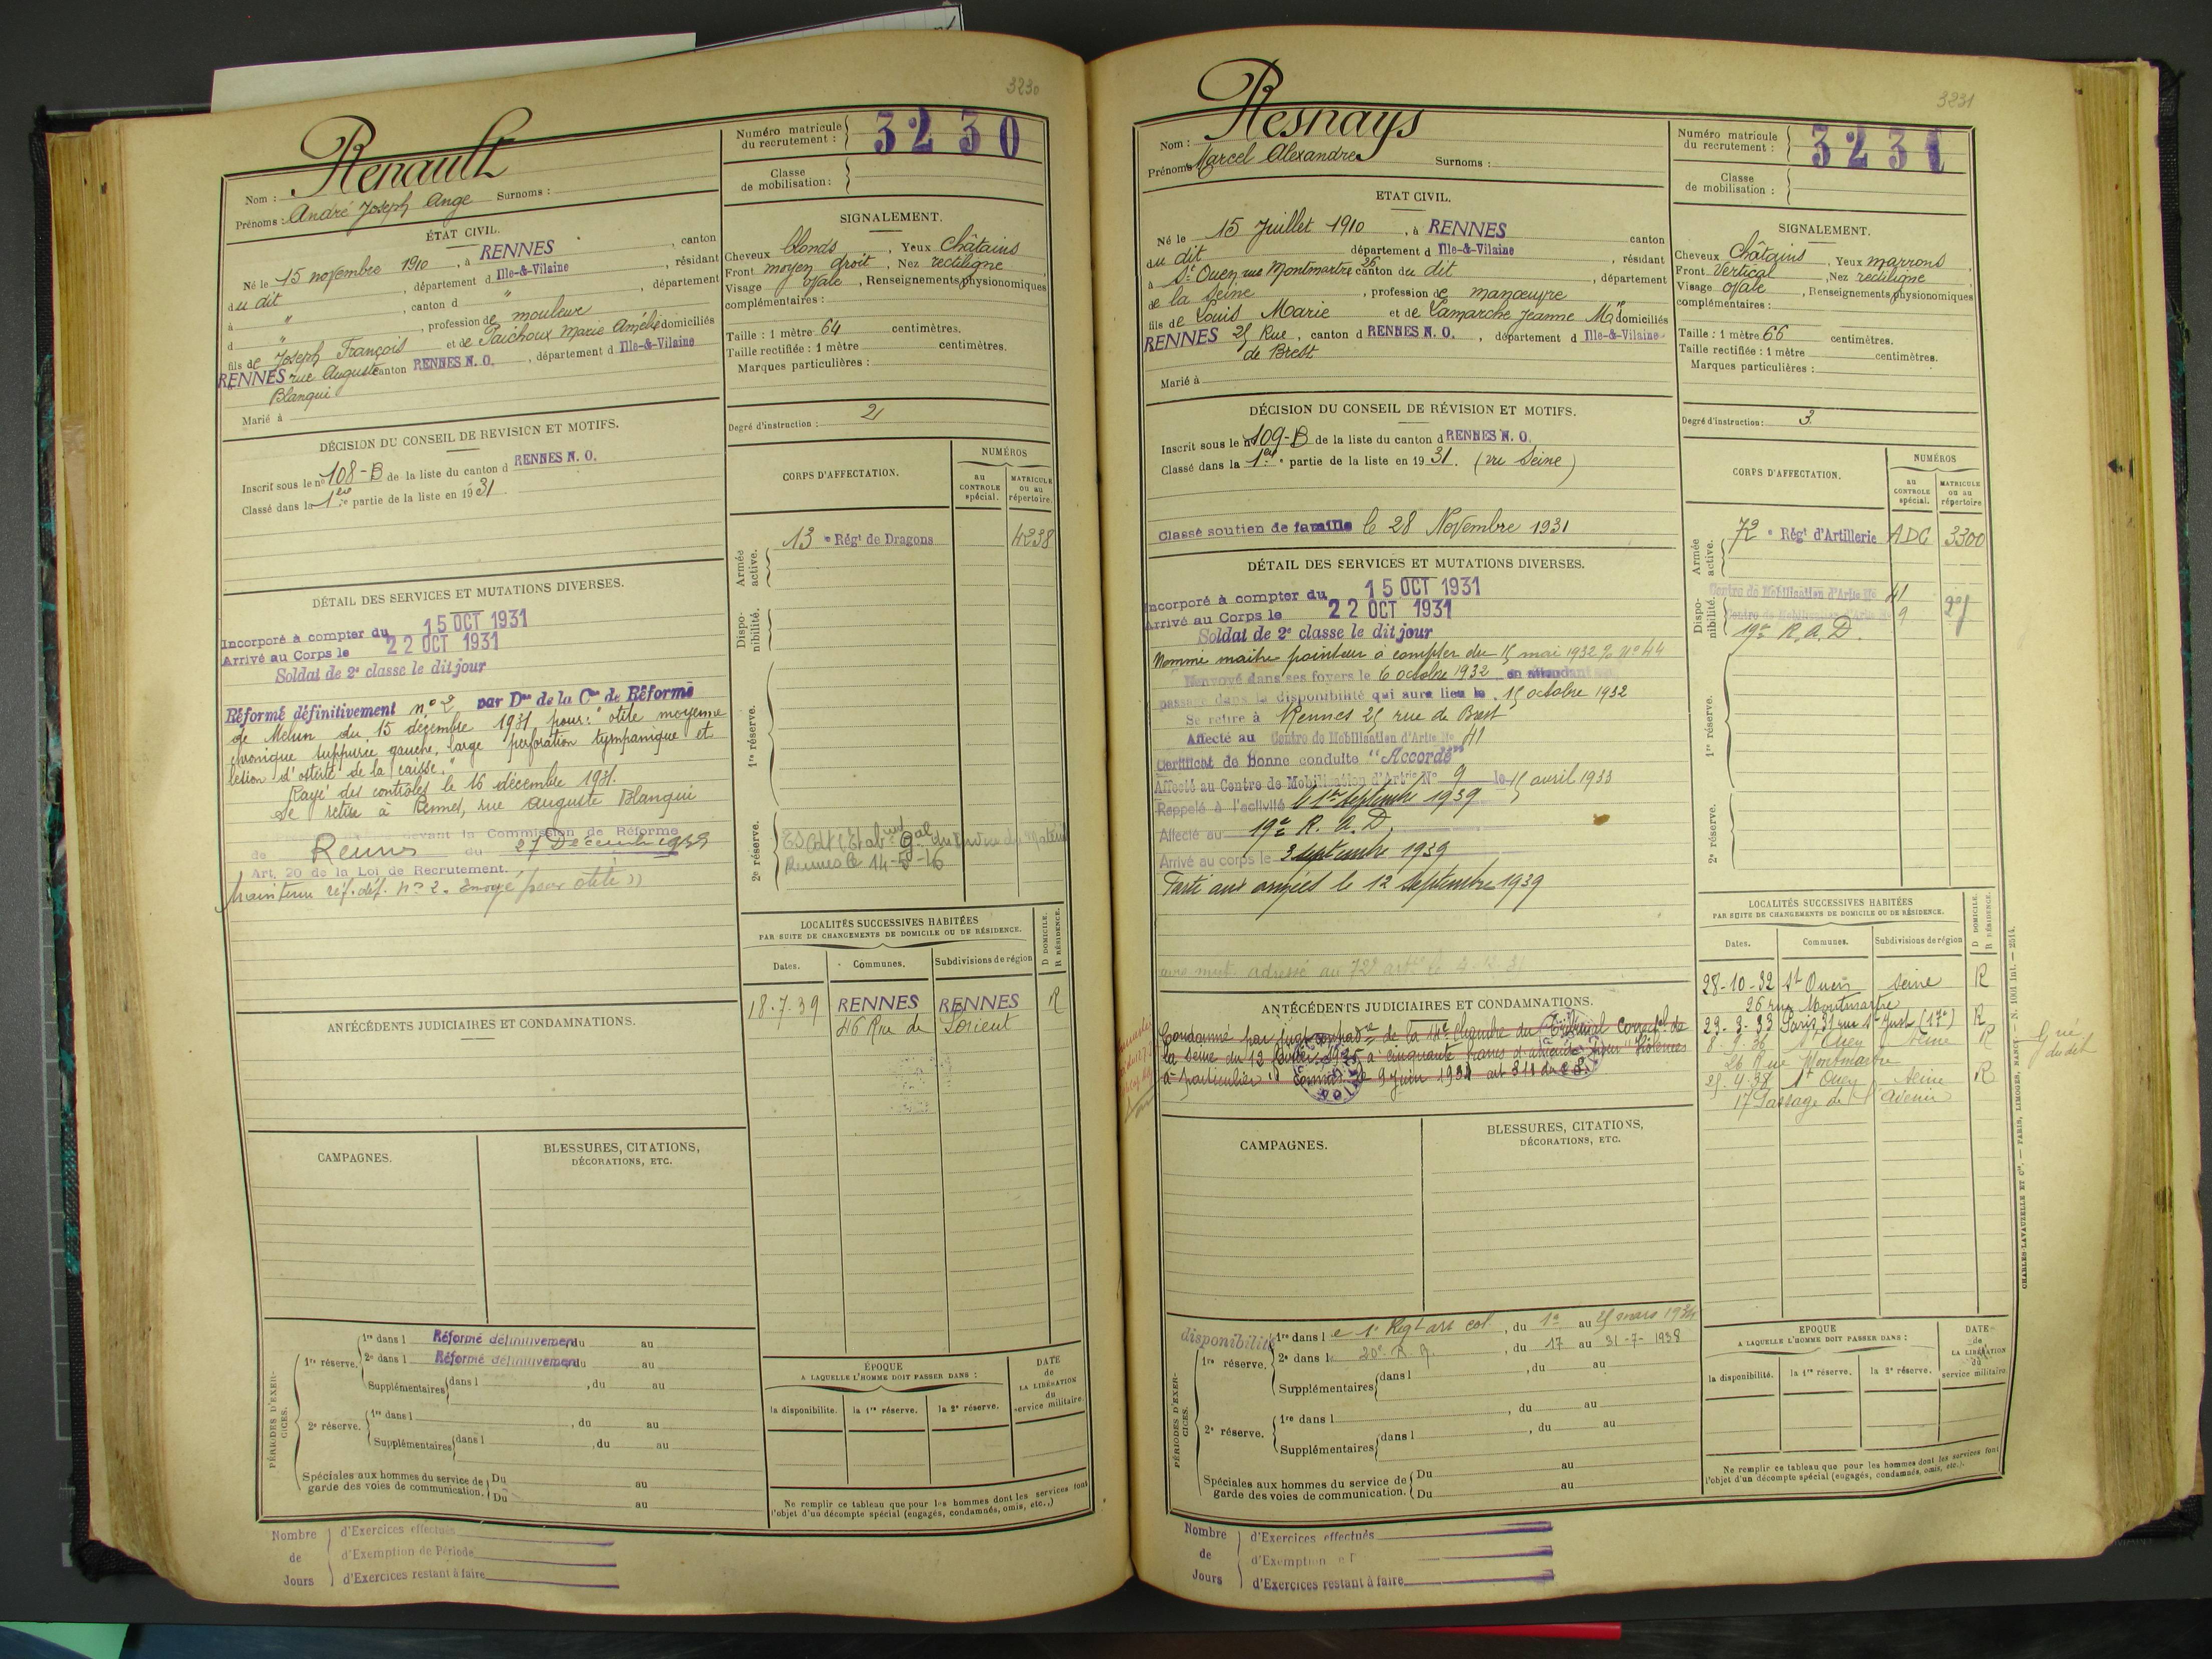 3230
Renault
Nom :
Prénoms : André Joseph Ange Surnoms :
Numéro matricule du recrutement : 3230
Classe de mobilisation :
ÉTAT CIVIL.
Né le 15 novembre 1910, à RENNES, canton
du dit, département d Ille-&-Vilaine, résidant
à " , canton d " , département
d " , profession de mouleur
fils de Joseph François et de Paichoux Marie Amélie domiciliés
à RENNES rue Auguste canton RENNES N. O., département d Ille-&-Vilaine
Blanqui
Marié à
SIGNALEMENT.
Cheveux blonds, Yeux Châtains
Front moyen droit, Nez rectiligne
Visage ovale, Renseignements physionomiques
complémentaires :
Taille : 1 mètre 64 centimètres.
Taille rectifiée : 1 mètre centimètres.
Marques particulières :
Degré d'instruction : 2
DÉCISION DU CONSEIL DE RÉVISION ET MOTIFS.
Inscrit sous le n° 108-B de la liste du canton d RENNES N. O.
Classé dans la 1ère partie de la liste en 1931
DÉTAIL DES SERVICES ET MUTATIONS DIVERSES.
Incorporé à compter du 15 OCT 1931
Arrivé au Corps le 22 OCT 1931
Soldat de 2e classe le dit jour
Réformé définitivement n° 2 par Don de la Con de Réforme
de Melun du 15 décembre 1931 pour : "otite moyenne
chronique suppurée gauche, large perforation tympanique et
lésion d'ostéite de la caisse."
Rayé des contrôles le 16 décembre 1931.
Se retire à Rennes, rue Auguste Blanqui
devant la Commission de Réforme
de Rennes du 27 Décembre 1939
Art. 20 de la Loi de Recrutement.
Maintenu réf. déf. n° 2.
ANTÉCÉDENTS JUDICIAIRES ET CONDAMNATIONS.
CAMPAGNES.
BLESSURES, CITATIONS, DÉCORATIONS, ETC.
CORPS D'AFFECTATION.
NUMÉROS
au CONTROLE spécial.
MATRICULE ou au répertoire.
Armée active.
13e Régt de Dragons 4238
Disponibilité.
1re réserve.
2e réserve.
Rennes le 14-5-16
LOCALITÉS SUCCESSIVES HABITÉES
PAR SUITE DE CHANGEMENTS DE DOMICILE OU DE RÉSIDENCE.
D DOMICILE. R RÉSIDENCE.
Dates. Communes. Subdivisions de région
18.7.39 RENNES RENNES R
46 Rue de Lorient
PÉRIODES D'EXERCICES.
1re réserve. 1re dans l Réformé définitivement du au
2e dans l Réformé définitivement du au
Supplémentaires dans l , du au
2e réserve. 1re dans l , du au
Supplémentaires dans l , du au
Spéciales aux hommes du service de garde des voies de communication. Du au
Du au
ÉPOQUE
A LAQUELLE L'HOMME DOIT PASSER DANS :
la disponibilité. la 1re réserve. la 2e réserve.
DATE de LA LIBÉRATION du service militaire.
Ne remplir ce tableau que pour les hommes dont les services font
l'objet d'un décompte spécial (engagés, condamnés, omis, etc.,)
Nombre de Jours
d'Exercices effectués
d'Exemption de Période
d'Exercices restant à faire
3231
Resnays
Nom :
Prénoms Marcel Alexandre Surnoms :
Numéro matricule du recrutement : 3231
Classe de mobilisation :
ETAT CIVIL.
Né le 15 Juillet 1910, à RENNES canton
du dit département d Ille-&-Vilaine, résidant
à St Ouen rue Montmartre 26 canton du dit, département
de la Seine, profession de manœuvre
fils de Louis Marie et de Lamarche Jeanne Mie domiciliés
RENNES 25 Rue, canton d RENNES N. O., département d Ille-&-Vilaine
de Brest
Marié à
SIGNALEMENT.
Cheveux Châtains, Yeux marrons
Front Vertical, Nez rectiligne
Visage ovale, Renseignements physionomiques
complémentaires :
Taille : 1 mètre 66 centimètres.
Taille rectifiée : 1 mètre centimètres.
Marques particulières :
Degré d'instruction : 3
DÉCISION DU CONSEIL DE RÉVISION ET MOTIFS.
Inscrit sous le n° 109-B de la liste du canton d RENNES N. O.
Classé dans la 1ère partie de la liste en 1931. (vu Seine)
Classé soutien de famille le 28 Novembre 1931
DÉTAIL DES SERVICES ET MUTATIONS DIVERSES.
Incorporé à compter du 15 OCT 1931
Arrivé au Corps le 22 OCT 1931
Soldat de 2e classe le dit jour
Nommé maître pointeur à compter du 15 mai 1932 % N° 44
Renvoyé dans ses foyers le 6 octobre 1932 en attendant son
passage dans la disponibilité qui aura lieu le 15 octobre 1932
Se retire à Rennes 25 rue de Brest
Affecté au Centre de Mobilisation d'Artie No 41
Certificat de bonne conduite "Accordé"
Affecté au Centre de Mobilisation d'Artie No 9 le 15 avril 1933
Rappelé à l'activité le 1er septembre 1939
Affecté au 19e R. A. D.
Arrivé au corps le 3 septembre 1939
Parti aux armées le 12 Septembre 1939
adressé au 72e
ANTÉCÉDENTS JUDICIAIRES ET CONDAMNATIONS.
Condamné par de la 14e Chambre du Tribunal Correctel de
la Seine du 12 à cinquante francs d'amende pour "Violences
à particulier"
CAMPAGNES.
BLESSURES, CITATIONS, DÉCORATIONS, ETC.
CORPS D'AFFECTATION.
NUMÉROS
au CONTROLE spécial.
MATRICULE ou au répertoire
Armée active.
72e Régt d'Artillerie ADC 3300
Disponibilité.
Centre de Mobilisation d'Artie No 41
Centre de Mobilisation d'Artie No 9
19e R. A. D.
1re réserve.
2e réserve.
LOCALITÉS SUCCESSIVES HABITÉES
PAR SUITE DE CHANGEMENTS DE DOMICILE OU DE RÉSIDENCE.
D DOMICILE. R RÉSIDENCE.
Dates. Communes. Subdivisions de région
28-10-32 St Ouen Seine R
26 rue Montmartre
29.3.33 Paris 31 rue St Just (17e) R
8.9.36 St Ouen Seine R
26 Rue Montmartre
25.4.38 St Ouen Seine R
17 Passage de l'Avenir
PÉRIODES D'EXERCICES.
disponibilité
1re réserve. 1re dans l e 1e Regt art col, du 1er au 25 mars 1934
2e dans l 20e R. A., du 17 au 31-7-1938
Supplémentaires dans l , du au
2e réserve. 1re dans l , du au
Supplémentaires dans l , du au
Spéciales aux hommes du service de garde des voies de communication. Du au
Du au
EPOQUE
A LAQUELLE L'HOMME DOIT PASSER DANS :
la disponibilité. la 1re réserve. la 2e réserve.
DATE de LA LIBÉRATION du service militaire.
Ne remplir ce tableau que pour les hommes dont les services font
l'objet d'un décompte spécial (engagés, condamnés, omis, etc.).
CHARLES-LAVAUZELLE ET Cie. — PARIS, LIMOGES, NANCY — N. 1001 Int. — 2514.
Nombre de Jours
d'Exercices effectués
d'Exemption
d'Exercices restant à faire